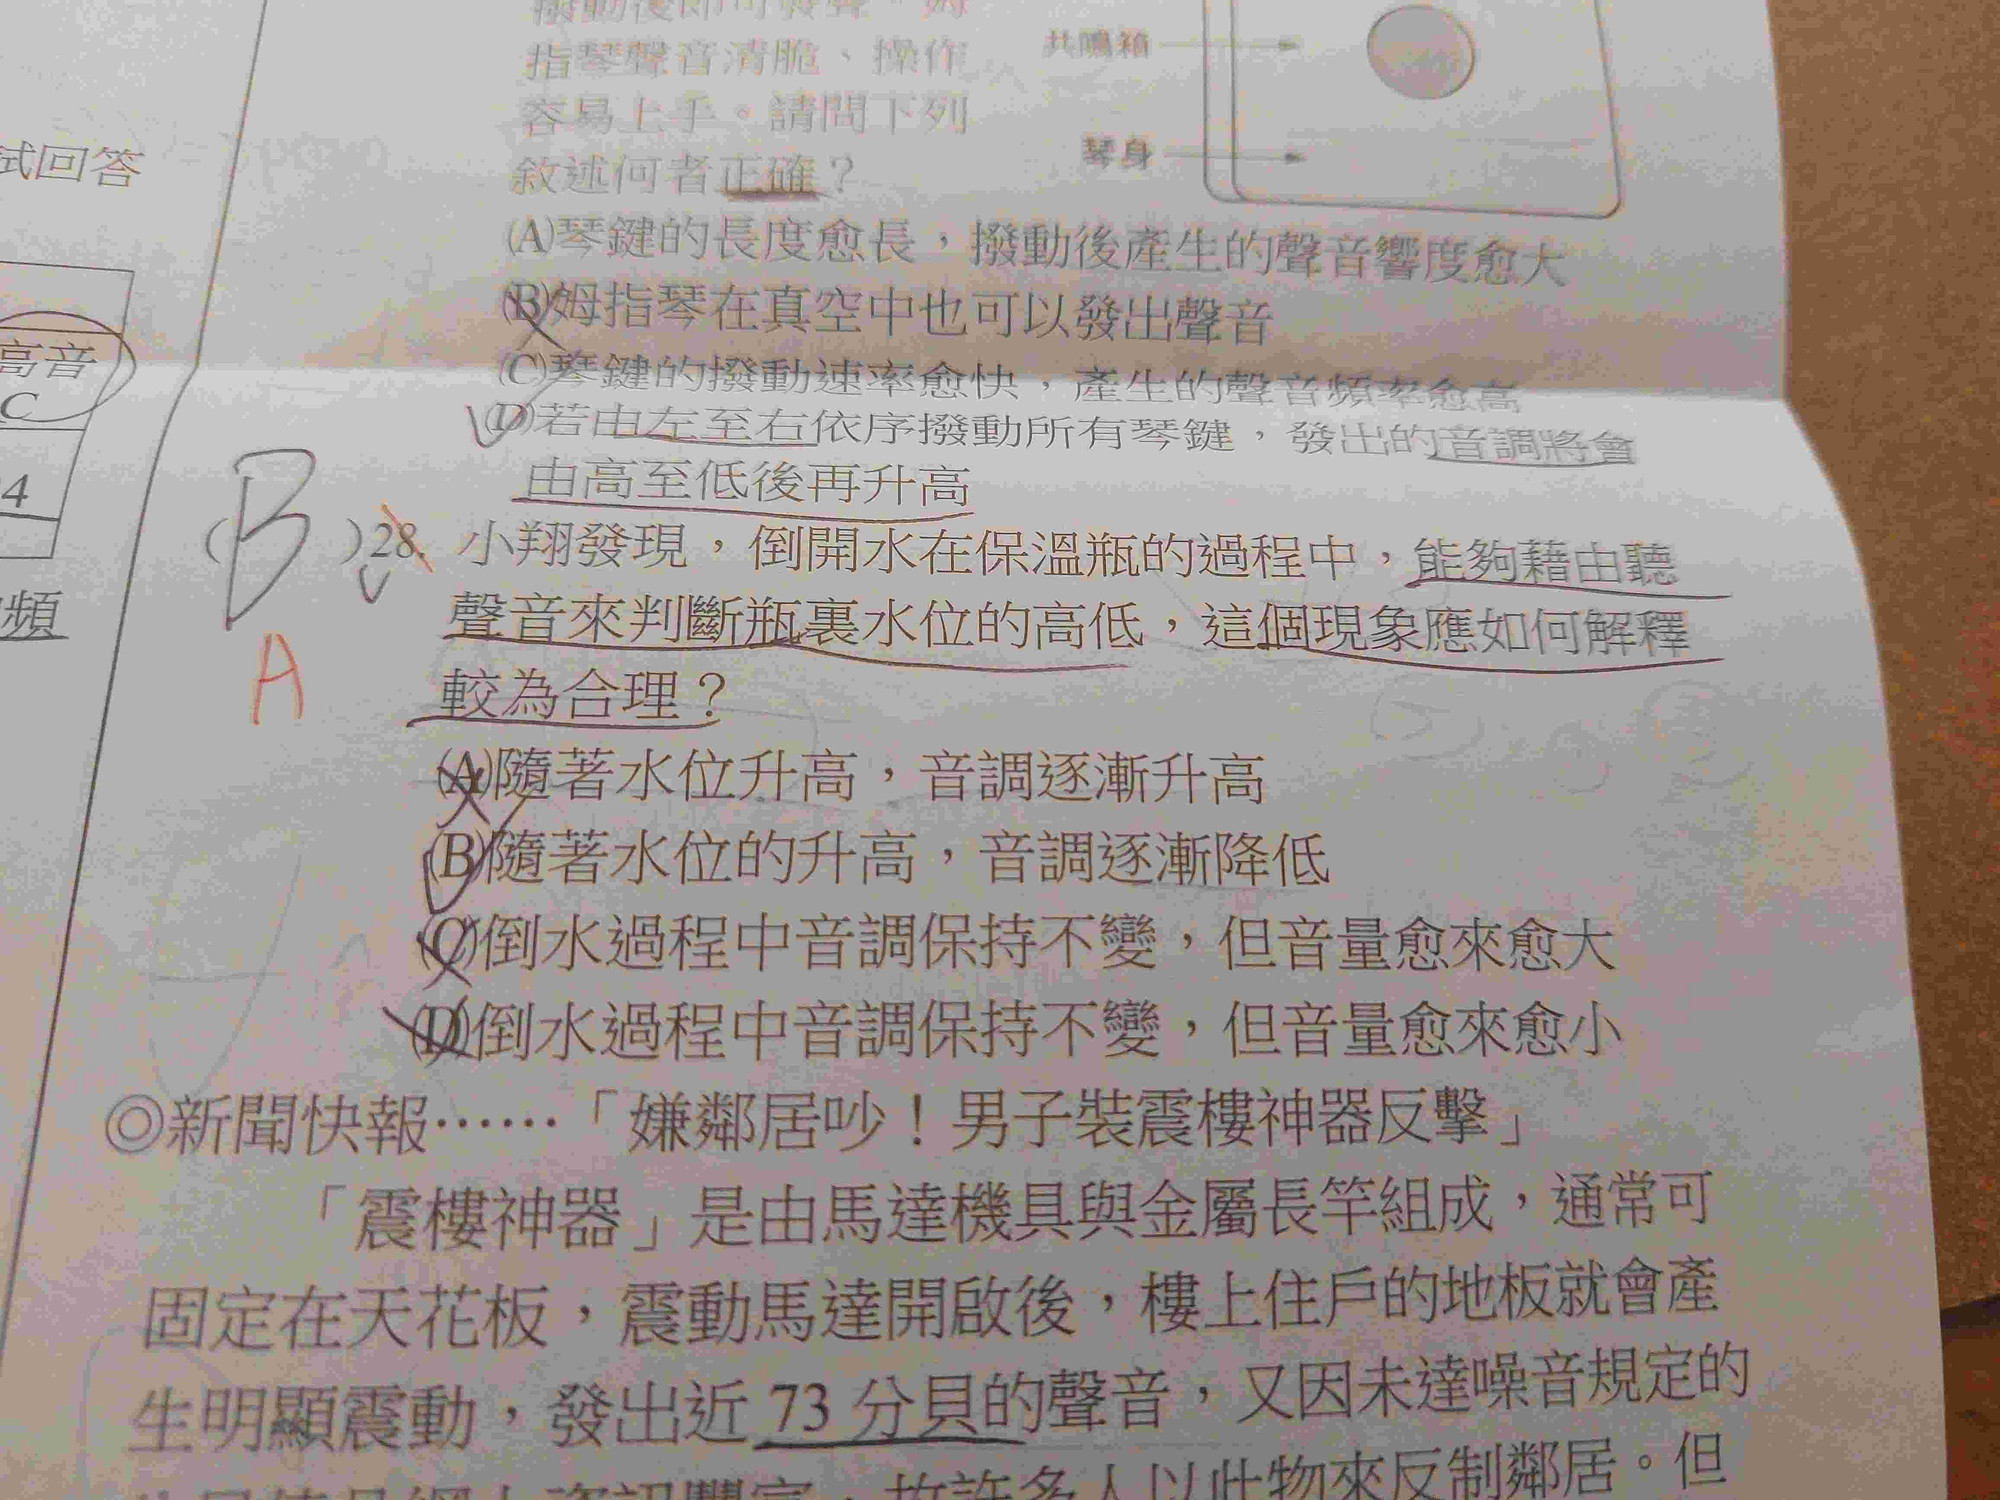 指琴聲音清脆、操作
容易上手。請問下列
敘述何者正確？
共鳴箱
琴身
(A)琴鍵的長度愈長，撥動後產生的聲音響度愈大
(B)姆指琴在真空中也可以發出聲音
(C)琴鍵的撥動速率愈快，產生的聲音頻率愈高
(D)若由左至右依序撥動所有琴鍵，發出的音調將會
由高至低後再升高
( B )28. 小翔發現，倒開水在保溫瓶的過程中，能夠藉由聽
聲音來判斷瓶裏水位的高低，這個現象應如何解釋
較為合理？
A
(A)隨著水位升高，音調逐漸升高
(B)隨著水位的升高，音調逐漸降低
(C)倒水過程中音調保持不變，但音量愈來愈大
(D)倒水過程中音調保持不變，但音量愈來愈小
◎新聞快報……「嫌鄰居吵！男子裝震樓神器反擊」
「震樓神器」是由馬達機具與金屬長竿組成，通常可
固定在天花板，震動馬達開啟後，樓上住戶的地板就會產
生明顯震動，發出近 73 分貝的聲音，又因未達噪音規定的
故許多人以此物來反制鄰居。但
試回答
高音
C
4
頻